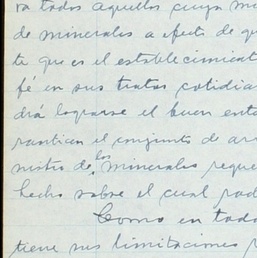 va todos aquellos cuya
de minerales a efecto de
te que es el establecimient
fé en sus tratos cotidia
drá lograrse el buen ente
rantican el conjunto de ar
nistro de los minerales reque
hecho sobre el cual rad
Como en toda
tiene sus limitaciones